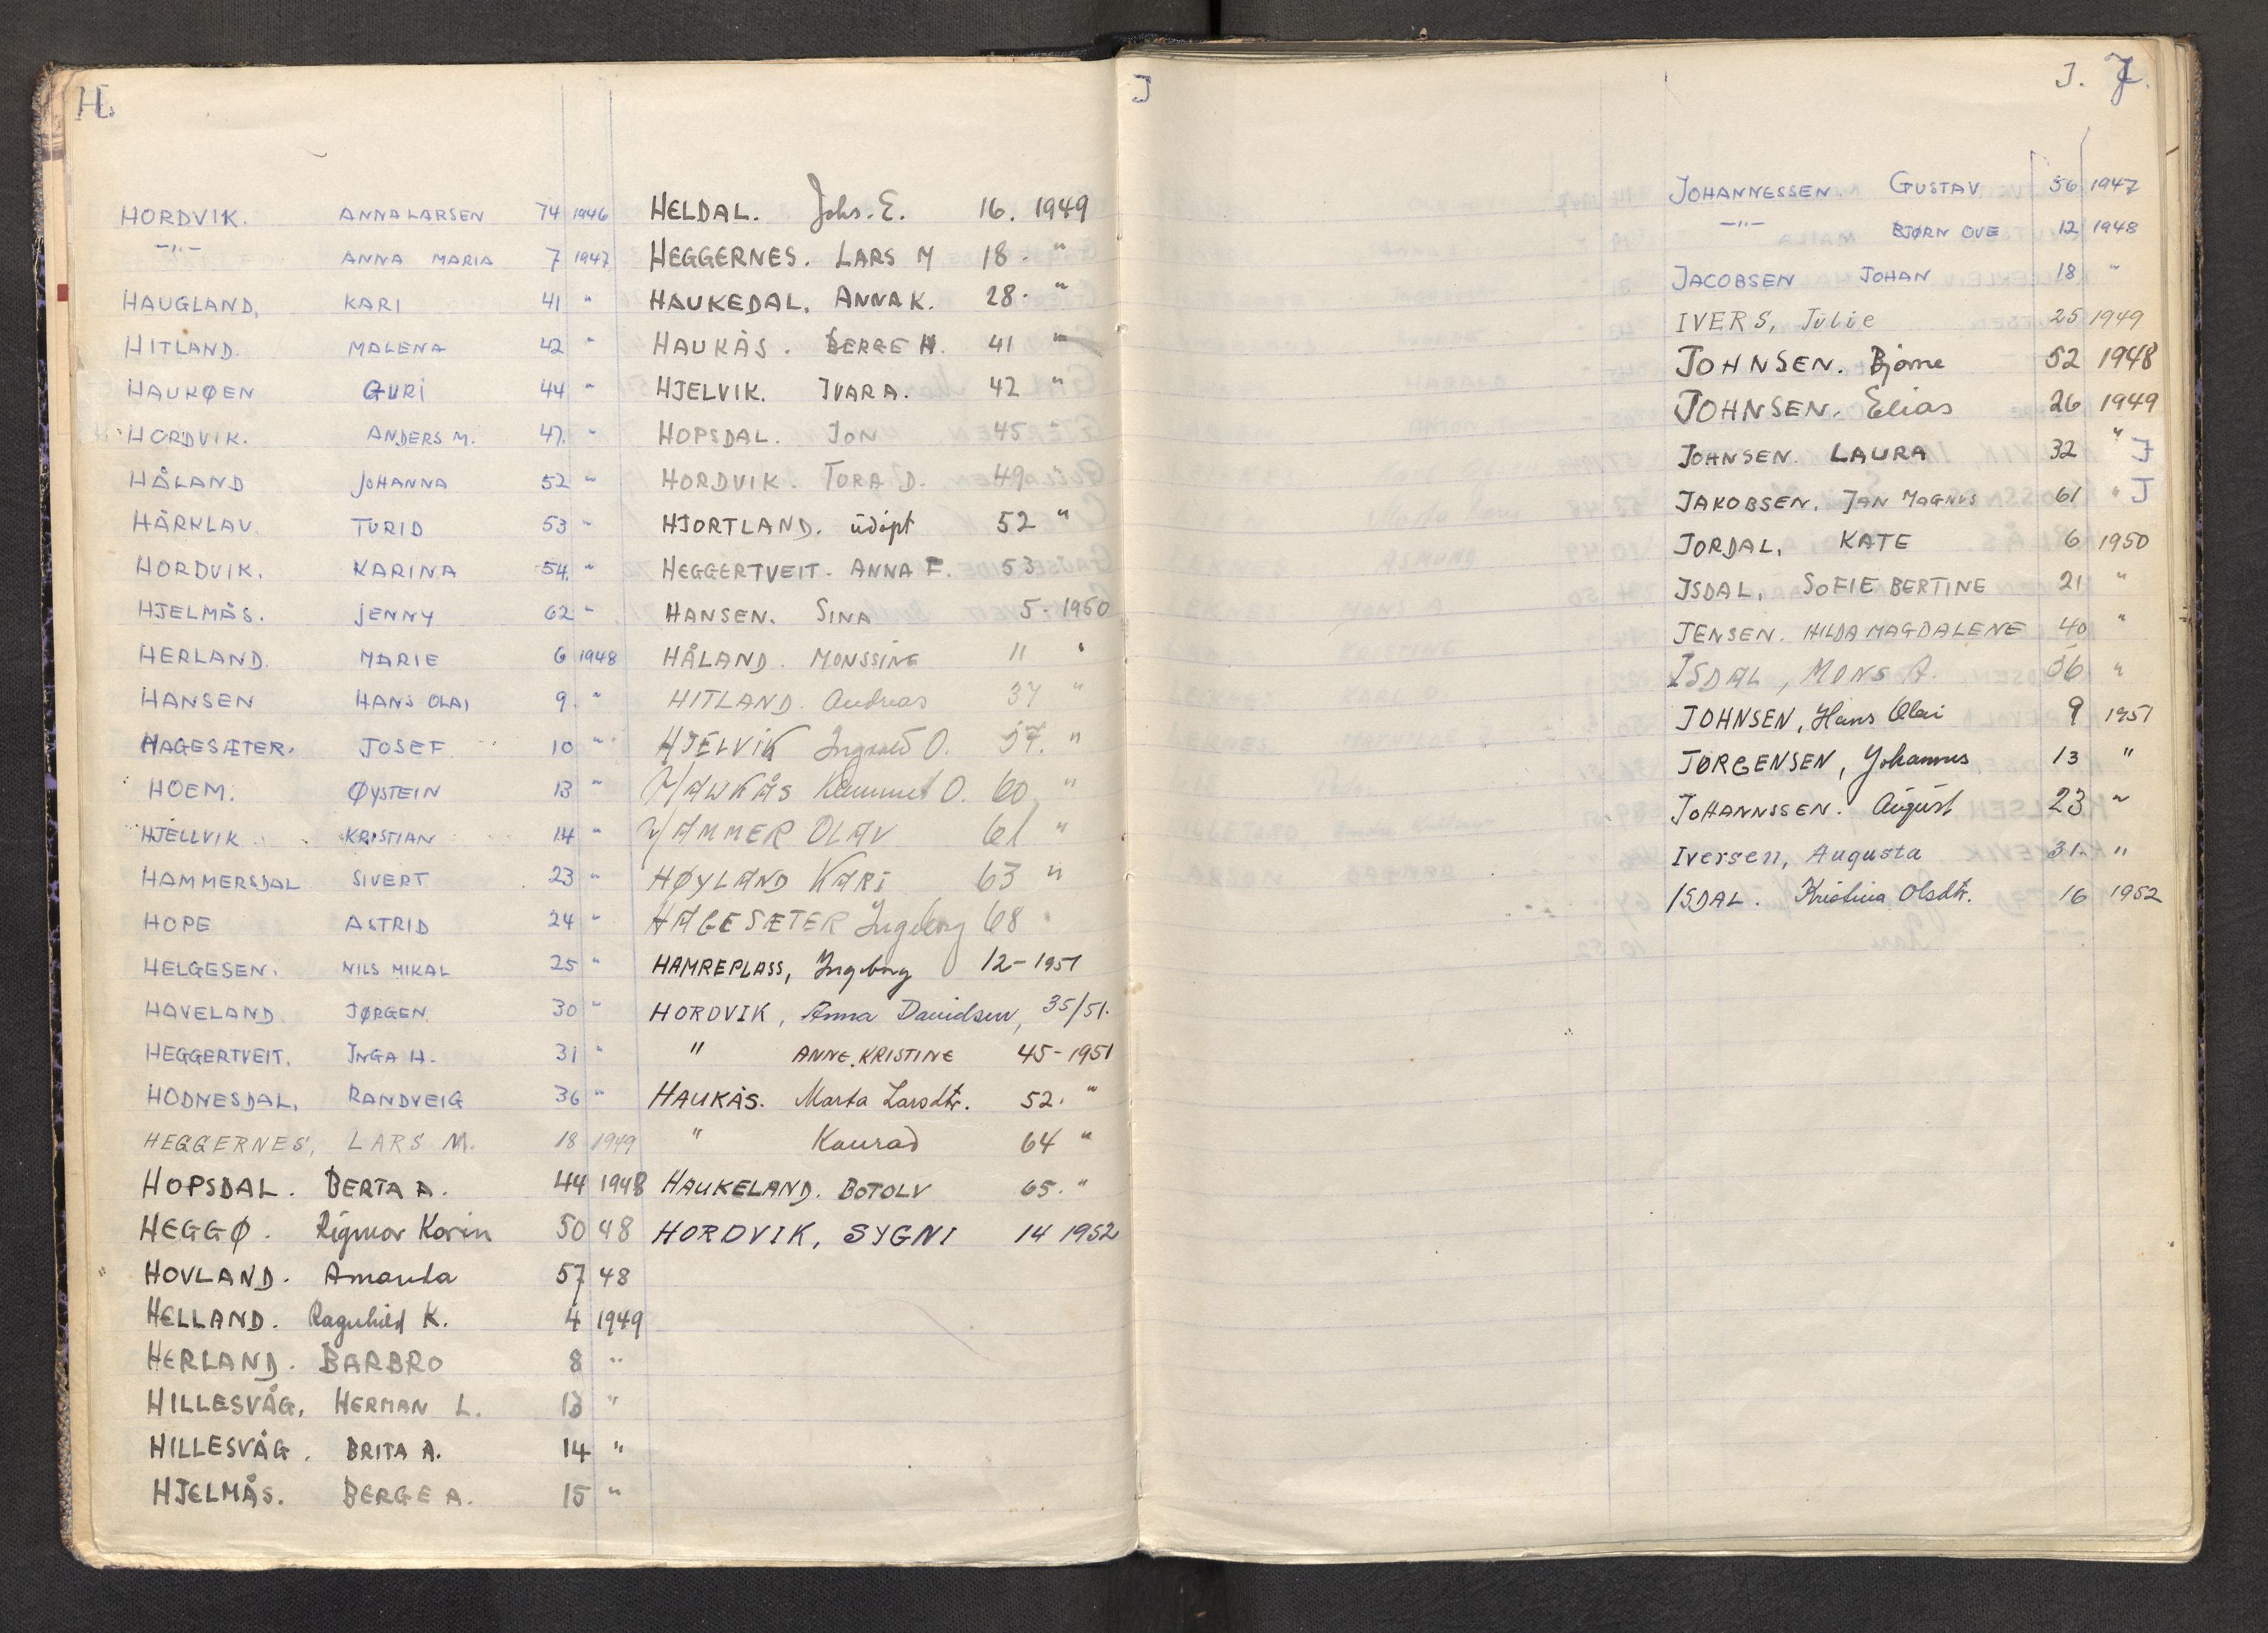 H.
HORDVIK. ANNA LARSEN 74 1946
—"— ANNA MARIA 7 1947
HAUGLAND, KARI 41 "
HITLAND. MALENA 42 "
HAUKØEN GURI 44 "
HORDVIK. ANDERS M. 47. "
HÅLAND JOHANNA 52 "
HÅRKLAU. TURID 53 "
HORDVIK. KARINA 54. "
HJELMÅS. JENNY 62 "
HERLAND. MARIE 6 1948
HANSEN HANS OLAI 9. "
HAGESÆTER. JOSEF 10 "
HOEM. ØYSTEIN 13 "
HJELLVIK KRISTIAN 14 "
HAMMERSDAL SIVERT 23 "
HOPE ASTRID 24 "
HELGESEN. NILS MIKAL 25 "
HAVELAND JØRGEN 30 "
HEGGERTVEIT. INGA H. 31 "
HODNESDAL, RANDVEIG 36 "
HEGGERNES, LARS M. 18 1949
HOPSDAL. BERTA A. 44 1948
HEGGØ. Rigmor Karin 50 48
HOVLAND. Amanda 57 48
HELLAND. Ragnhild K. 4 1949
HERLAND. BARBRO 8 "
HILLESVÅG, HERMAN L. 13 "
HILLESVÅG. BRITA A. 14 "
HJELMÅS. BERGE A. 15 "
HELDAL. Johs. E. 16. 1949
HEGGERNES. LARS M 18. "
HAUKEDAL, ANNA K. 28. "
HAUKÅS. BERGE H. 41 "
HJELVIK. IVAR A. 42 "
HOPSDAL. JON 45 "
HORDVIK. TORA D. 49 "
HJORTLAND. üdöpt 52 "
HEGGERTVEIT. ANNA F. 53
HANSEN. SINA 5. 1950
HÅLAND. MONSSINE 11 "
HITLAND. Andreas 37 "
HJELVIK Ingvald O. 57. "
HAUKÅS O. 60 "
HAMMER OLAV 61 "
HØYLAND KARI 63 "
HAGESÆTER Ingeborg 68 "
HAMREPLASS, Ingeborg 12-1951
HORDVIK, Anna Davidsen, 35/51.
" ANNE KRISTINE 45-1951
HAUKÅS. Marta Larsdtr. 52. "
" Konrad 64 "
HAUKELAND. BOTOLV 65. "
HORDVIK, SYGNI 14 1952
J
J. J.
JOHANNESSEN. GUSTAV 56 1947
—"— BJØRN OVE 12 1948
JACOBSEN JOHAN 18 "
IVERS, Julie 25 1949
JOHNSEN. Bjarne 52 1948
JOHNSEN. Elias 26 1949
JOHNSEN. LAURA 32 " J
JAKOBSEN. JAN MAGNUS 61 " J
JORDAL, KATE 6 1950
ISDAL, SOFIE BERTINE 21 "
JENSEN. HILDA MAGDALENE 40 "
ISDAL, MONS A. 56 "
JOHNSEN, Hans Olai 9 1951
JØRGENSEN, Johannes 13 "
JOHANNSSEN. August 23 "
Iversen, Augusta 31. "
ISDAL. Kristina Olsdtr. 16 1952